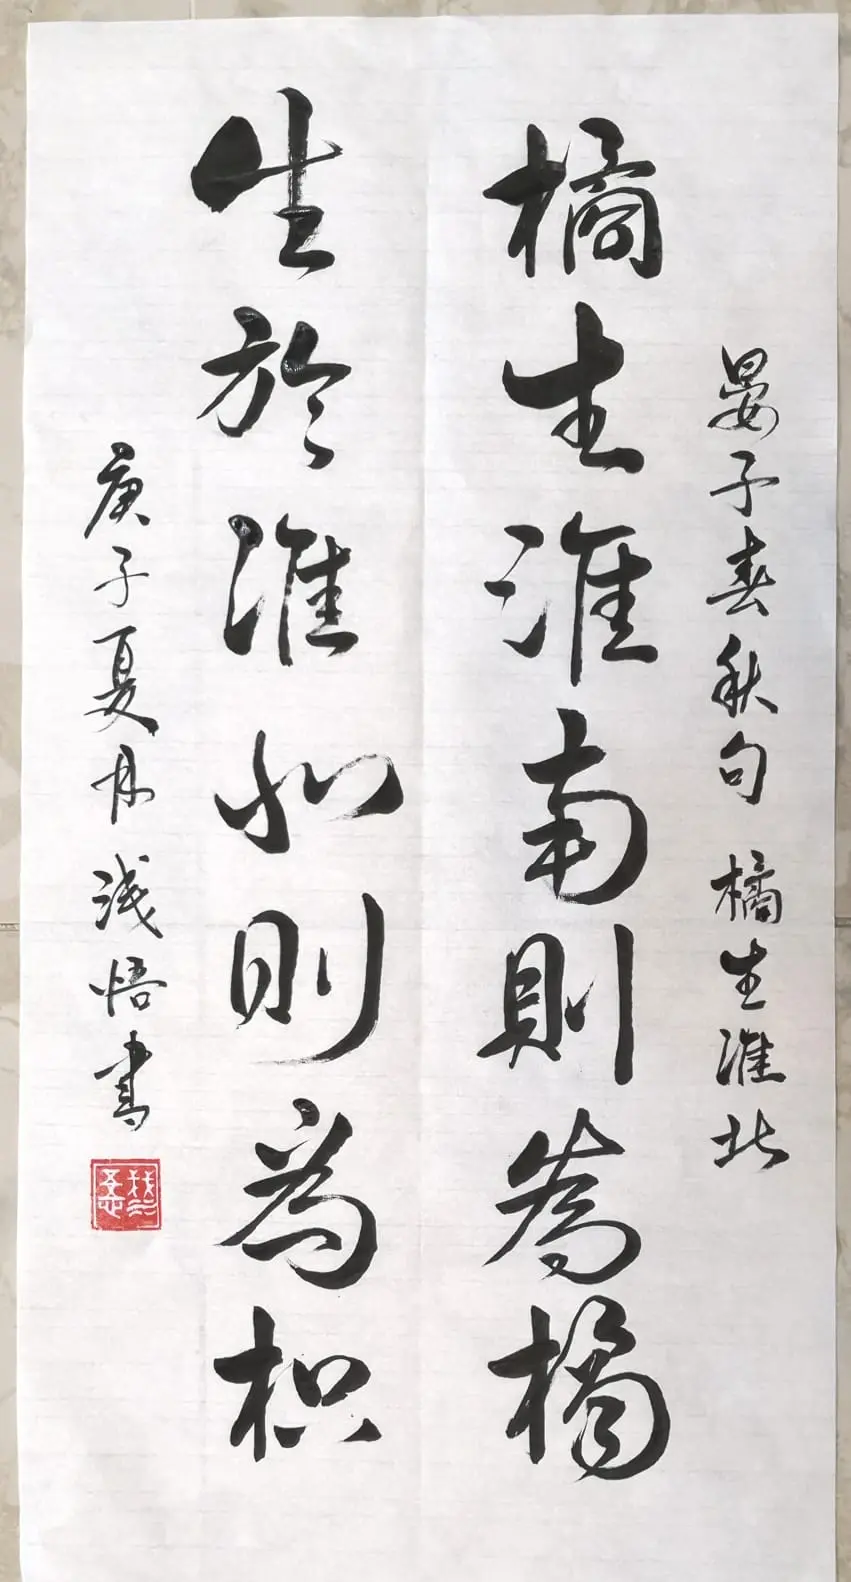 晏子春秋句 橘生淮北
橘生淮南則為橘
生於淮北則為枳
庚子夏月浅悟書